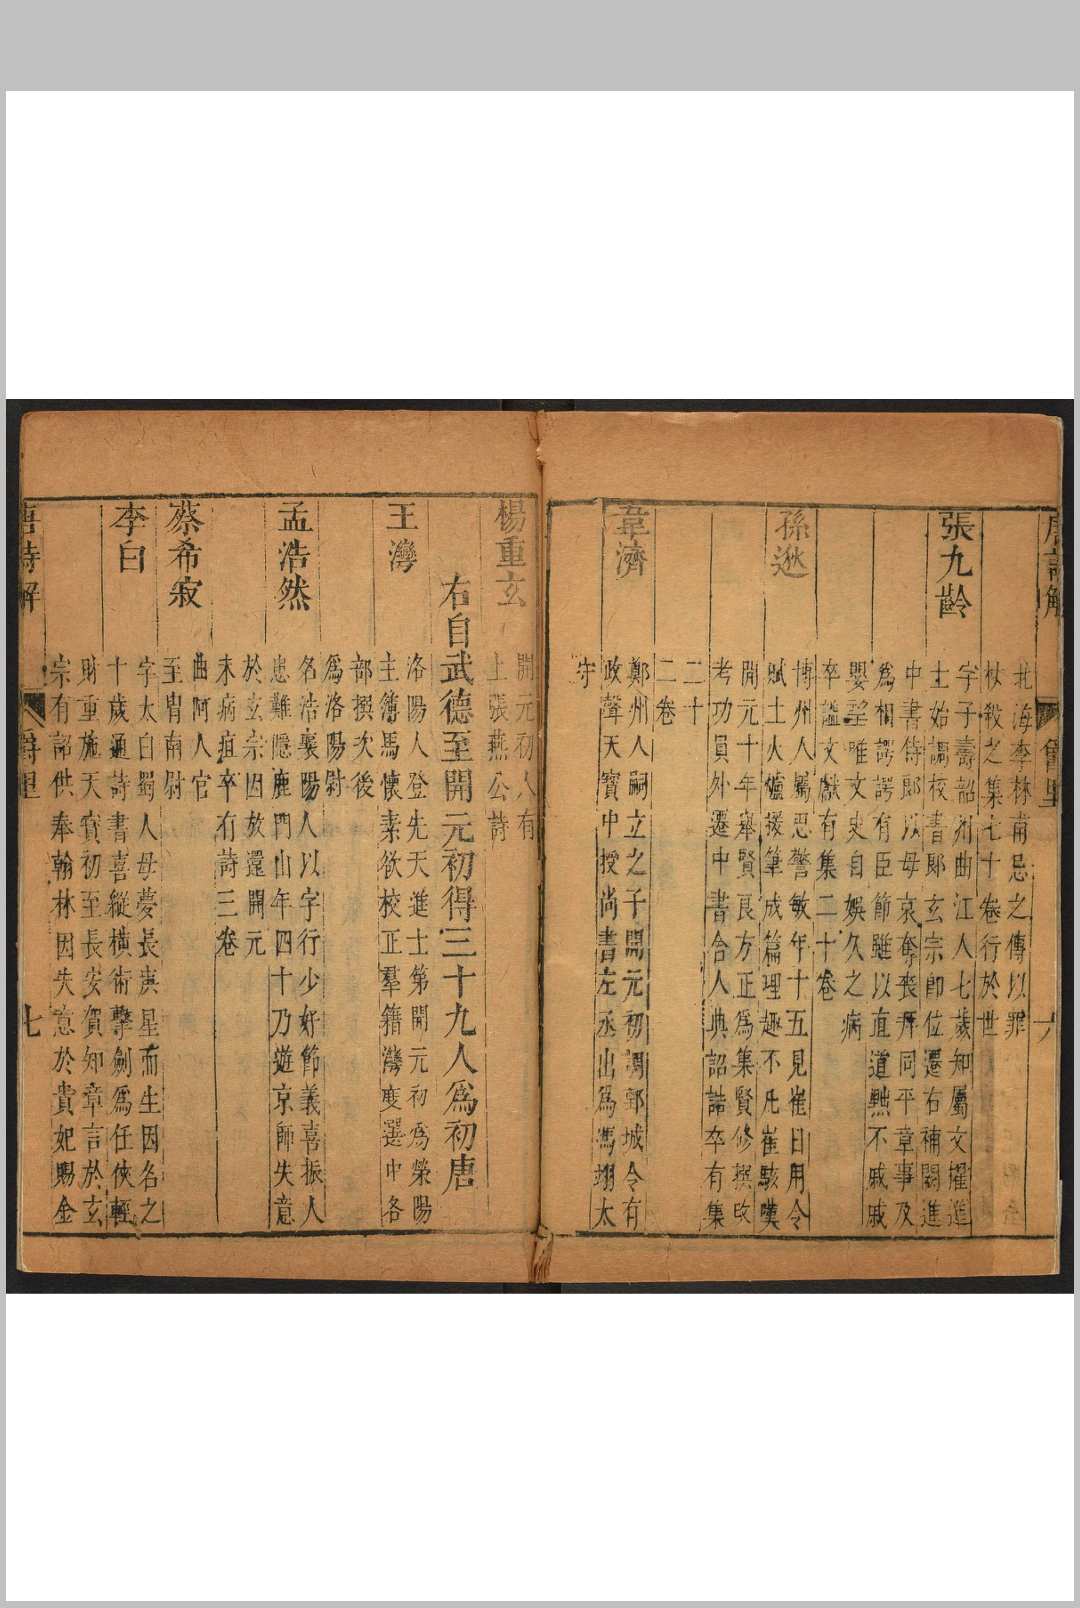 唐詩解 爵里 六
北海李林甫忌之傳以罪
杖殺之集七十卷行於世
張九齡
字子壽韶州曲江人七歲知屬文擢進
士始調校書郎玄宗即位遷右補闕進
中書侍郎以母哀奪喪拜同平章事及
為相諤諤有臣節雖以直道黜不戚戚
嬰望惟文史自娛久之病
卒謚文獻有集二十卷
孫逖
博州人屬思警敏年十五見崔日用令
賦土火爐援筆成篇理趣不凡崔駭嘆
開元十年舉賢良方正為集賢修撰改
考功員外遷中書舍人典詔誥卒有集
二十
二卷
韋濟
鄭州人嗣立之子開元初調鄄城令有
政聲天寶中授尚書左丞出為馮翊太
守
楊重玄
開元初人有
上張燕公詩
右自武德至開元初得三十九人爲初唐
王灣
洛陽人登先天進士第開元初為滎陽
主簿馬懷素欲校正羣籍灣度選中各
部撰次後
爲洛陽尉
孟浩然
名浩襄陽人以字行少好節義喜振人
患難隱鹿門山年四十乃遊京師失意
於玄宗因放還開元
末病疽卒有詩三卷
蔡希寂
曲阿人官
至胃南尉
李白
字太白蜀人母夢長庚星而生因名之
十歲通詩書喜縱橫術擊劍爲任俠輕
財重施天寶初至長安賀知章言於玄
宗有詔供奉翰林因失意於貴妃賜金
唐詩解 爵里 七